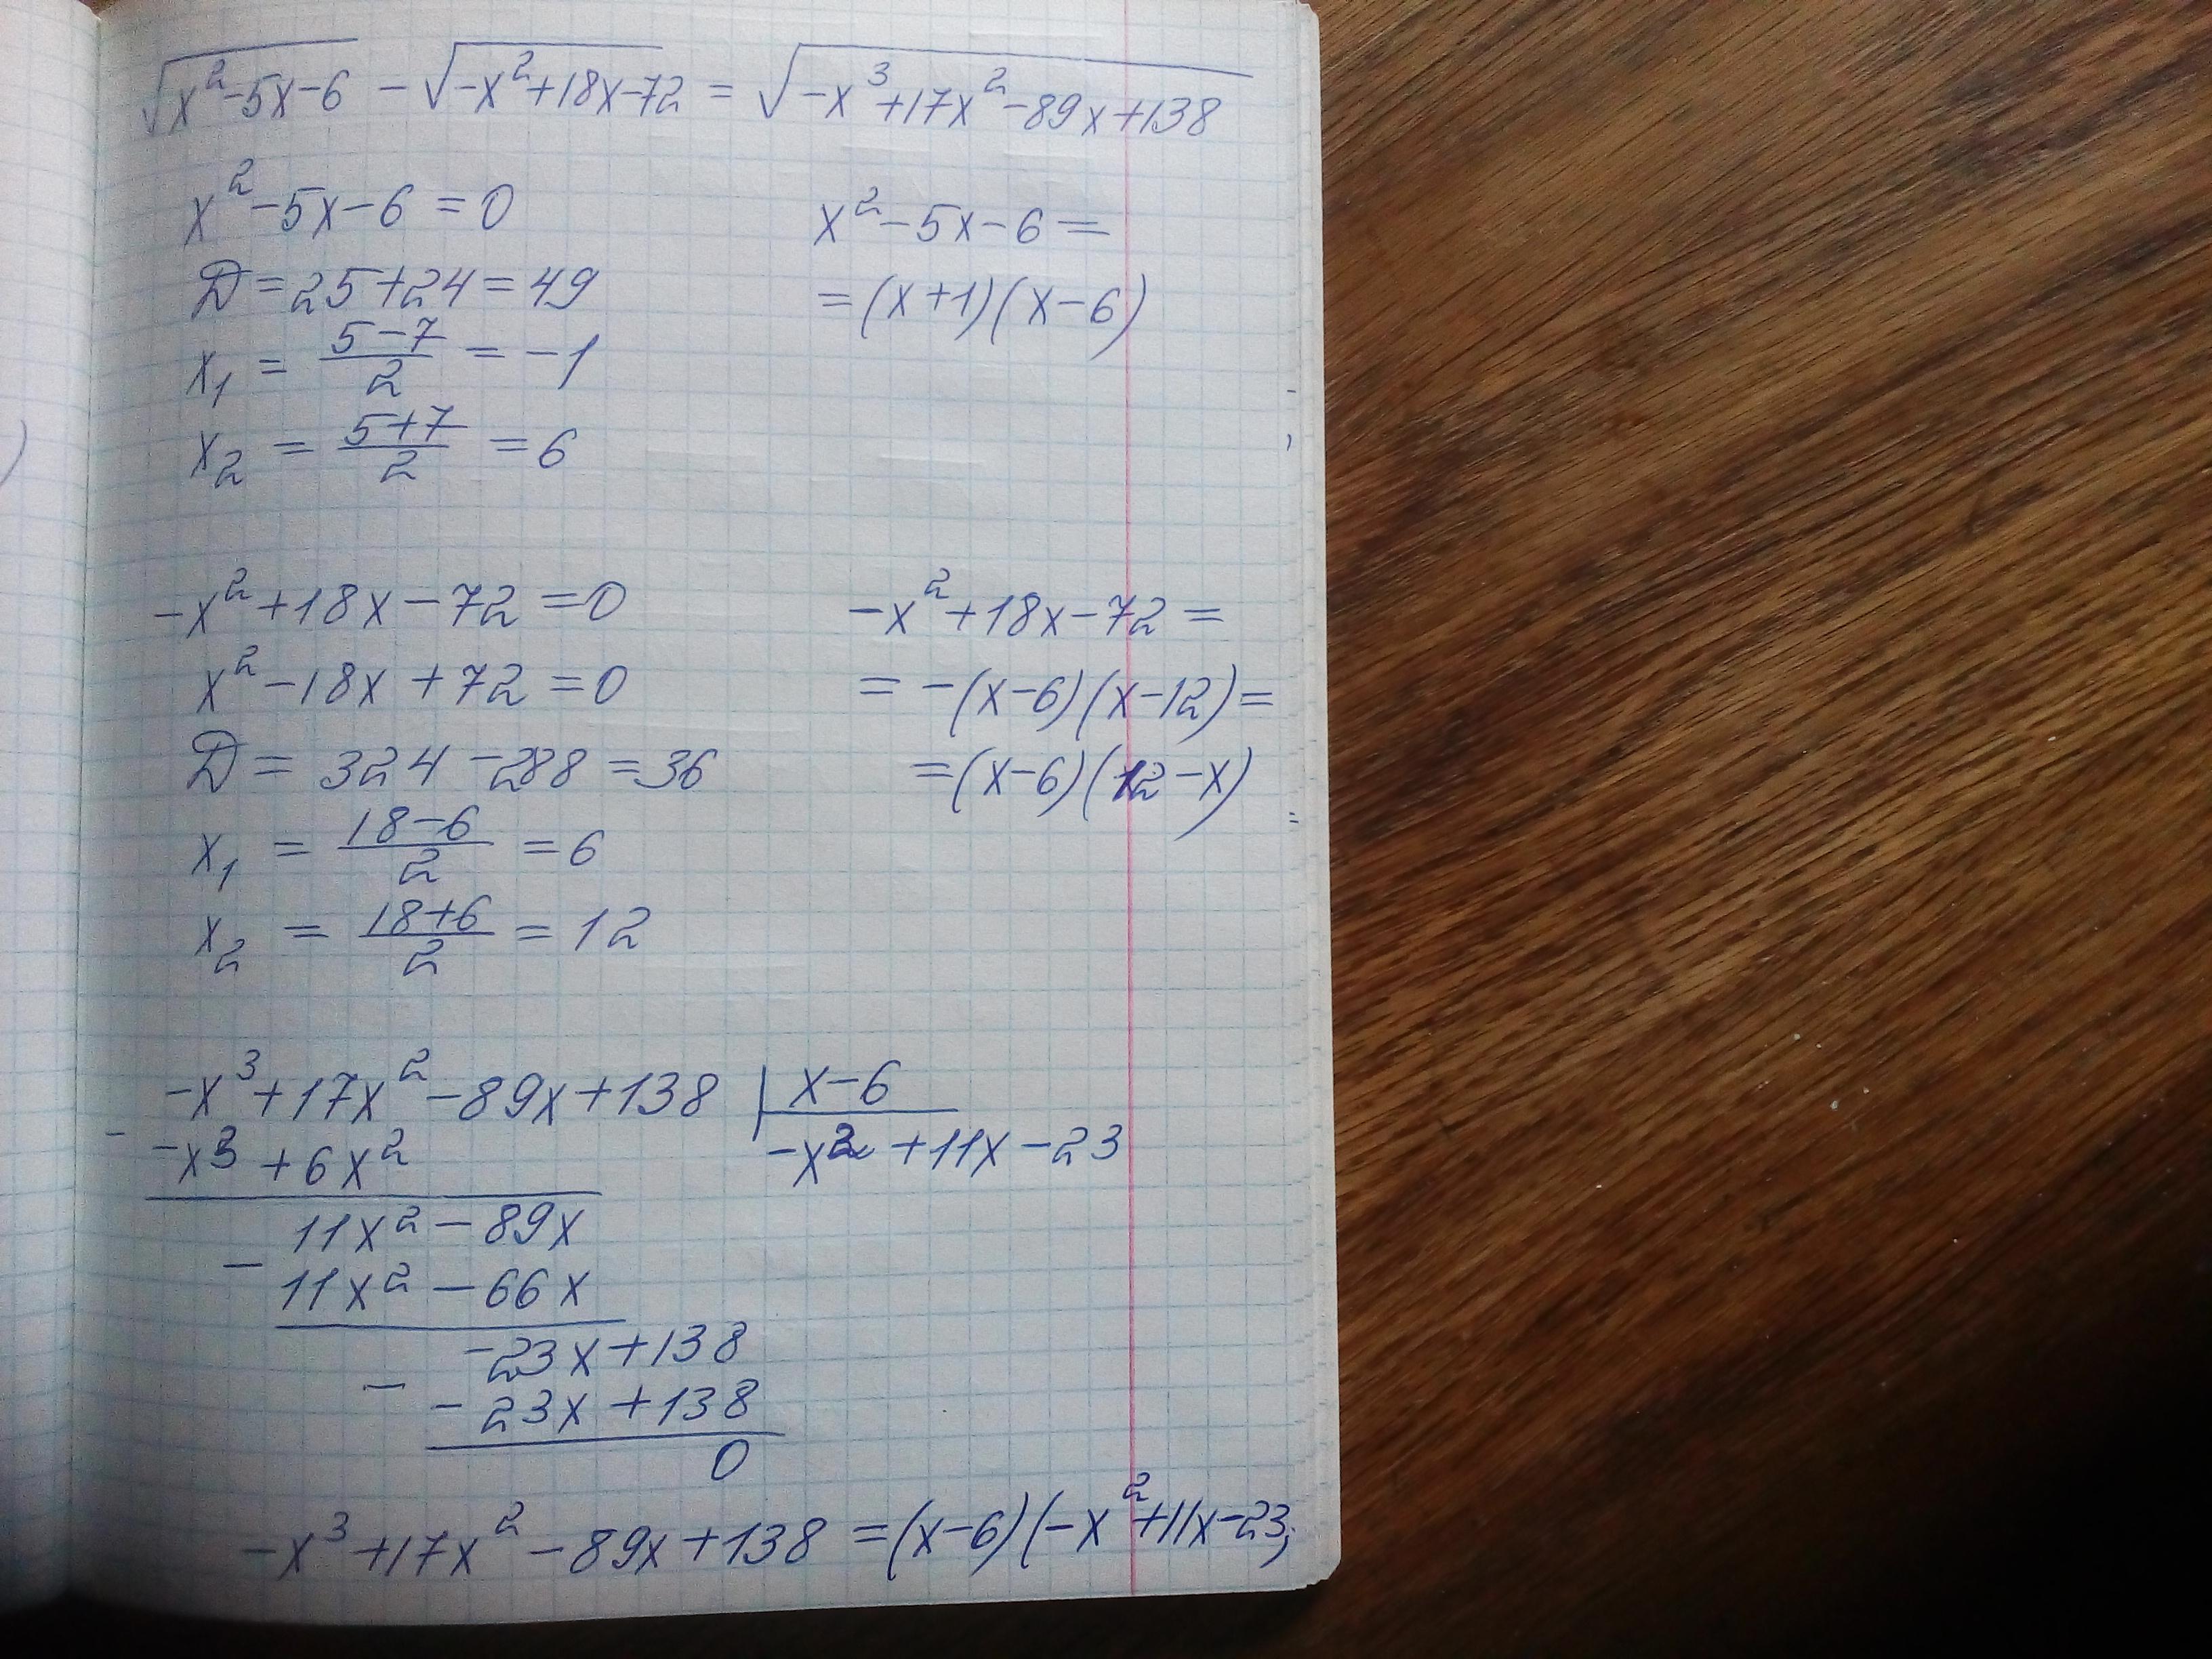 √(x²-5x-6) - √(-x²+18x-72) = √(-x³+17x²-89x+138)
x²-5x-6=0
D=25+24=49
x₁ = (5-7)/2 = -1
x₂ = (5+7)/2 = 6
x²-5x-6=
=(x+1)(x-6)
-x²+18x-72=0
x²-18x+72=0
D=324-288=36
x₁ = (18-6)/2 = 6
x₂ = (18+6)/2 = 12
-x²+18x-72=
=-(x-6)(x-12)=
=(x-6)(12-x)
-x³+17x²-89x+138 | x-6
- -x³+6x² | -x²+11x-23
11x²-89x
- 11x²-66x
-23x+138
- -23x+138
0
-x³+17x²-89x+138=(x-6)(-x²+11x-23)